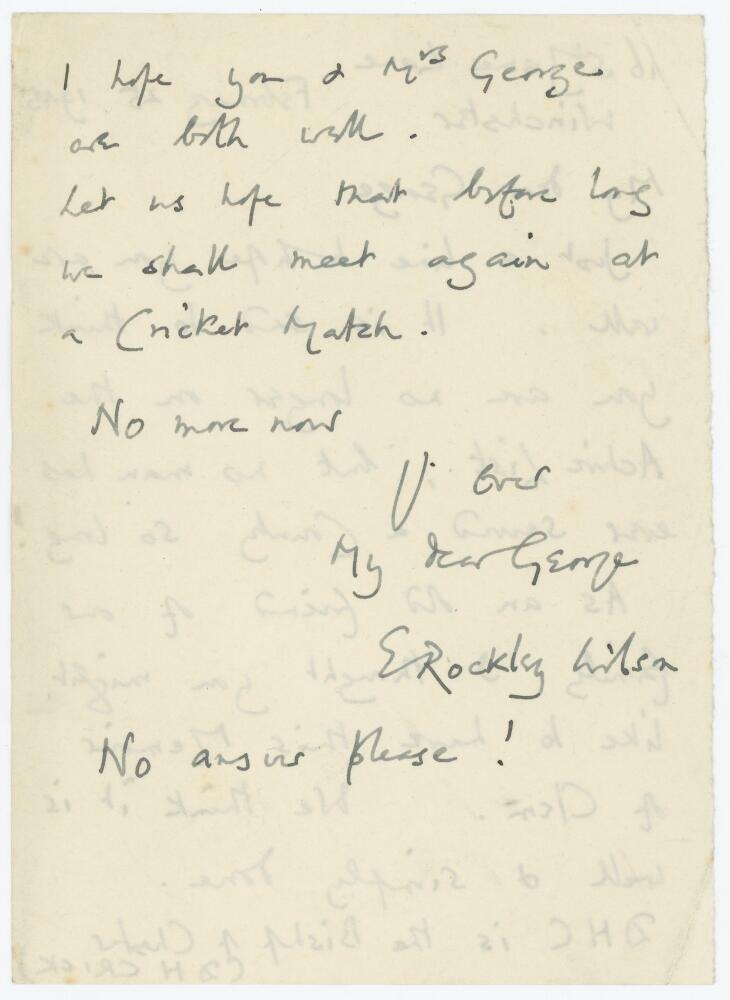 I hope you & Mrs George
are both well.
Let us hope that before long
we shall meet again at
a Cricket Match.
No more now
Ever
My dear George
E Rockley Wilson
No answer please!